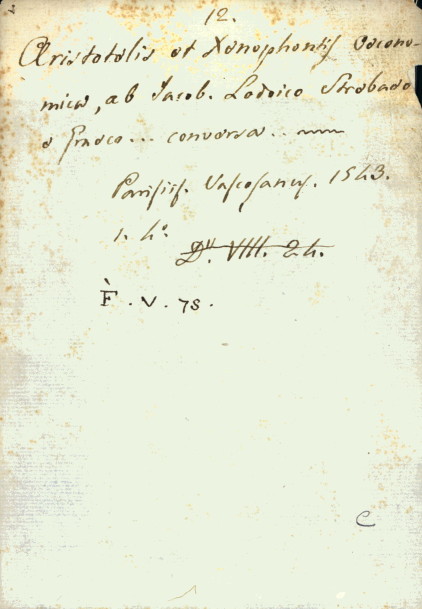 12.
Aristotelis et Xenophontis Oecono-
mica, ab Jacob. Lodoico Strebaeo
e Graeco... conversa..
Parisiis. Vascosanus. 1543.
1. 4º.
D. VIII. 24.
F. V. 78.
C